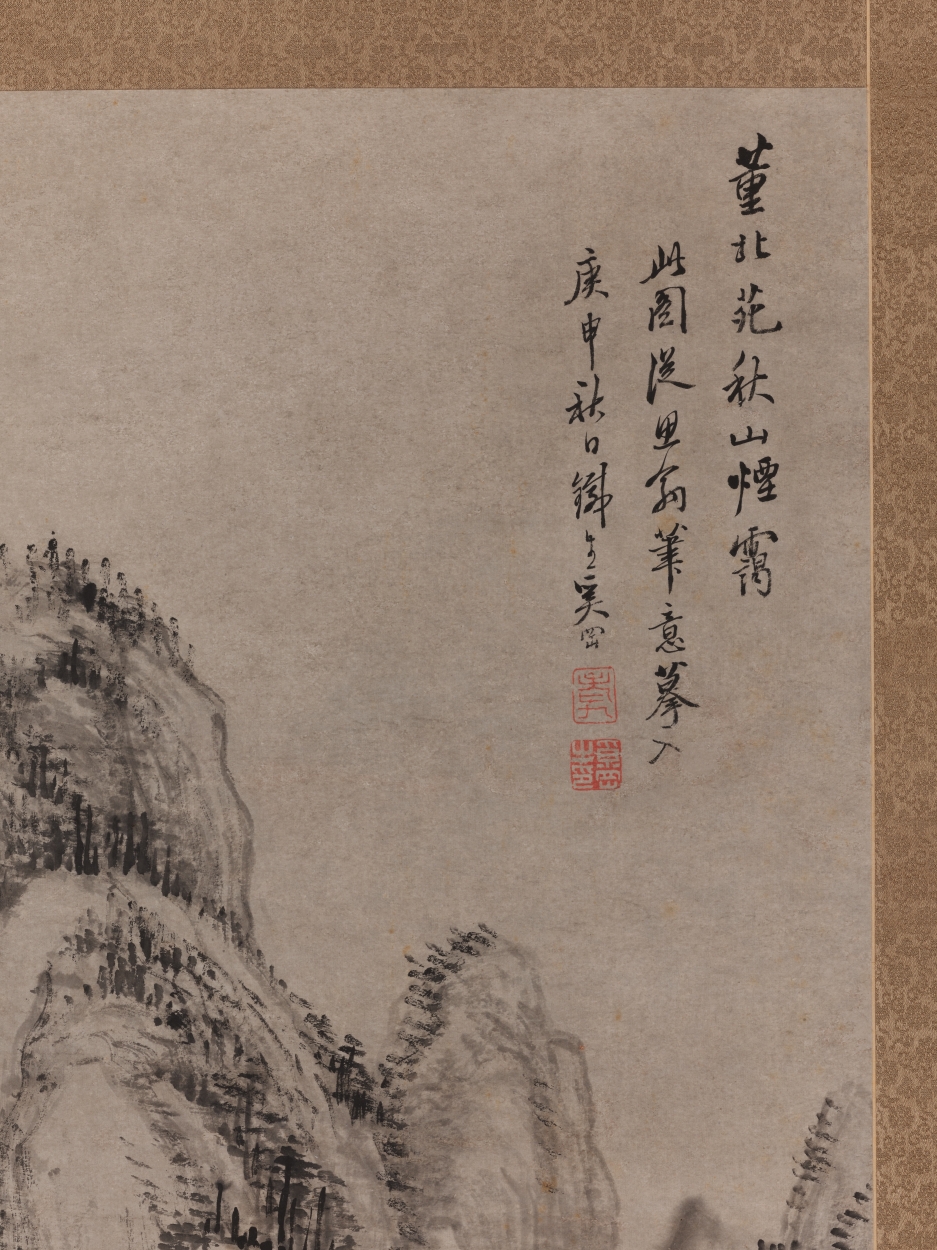 董北苑秋山煙靄
此圖從思翁筆意摹入
庚申秋日鐵生奚岡